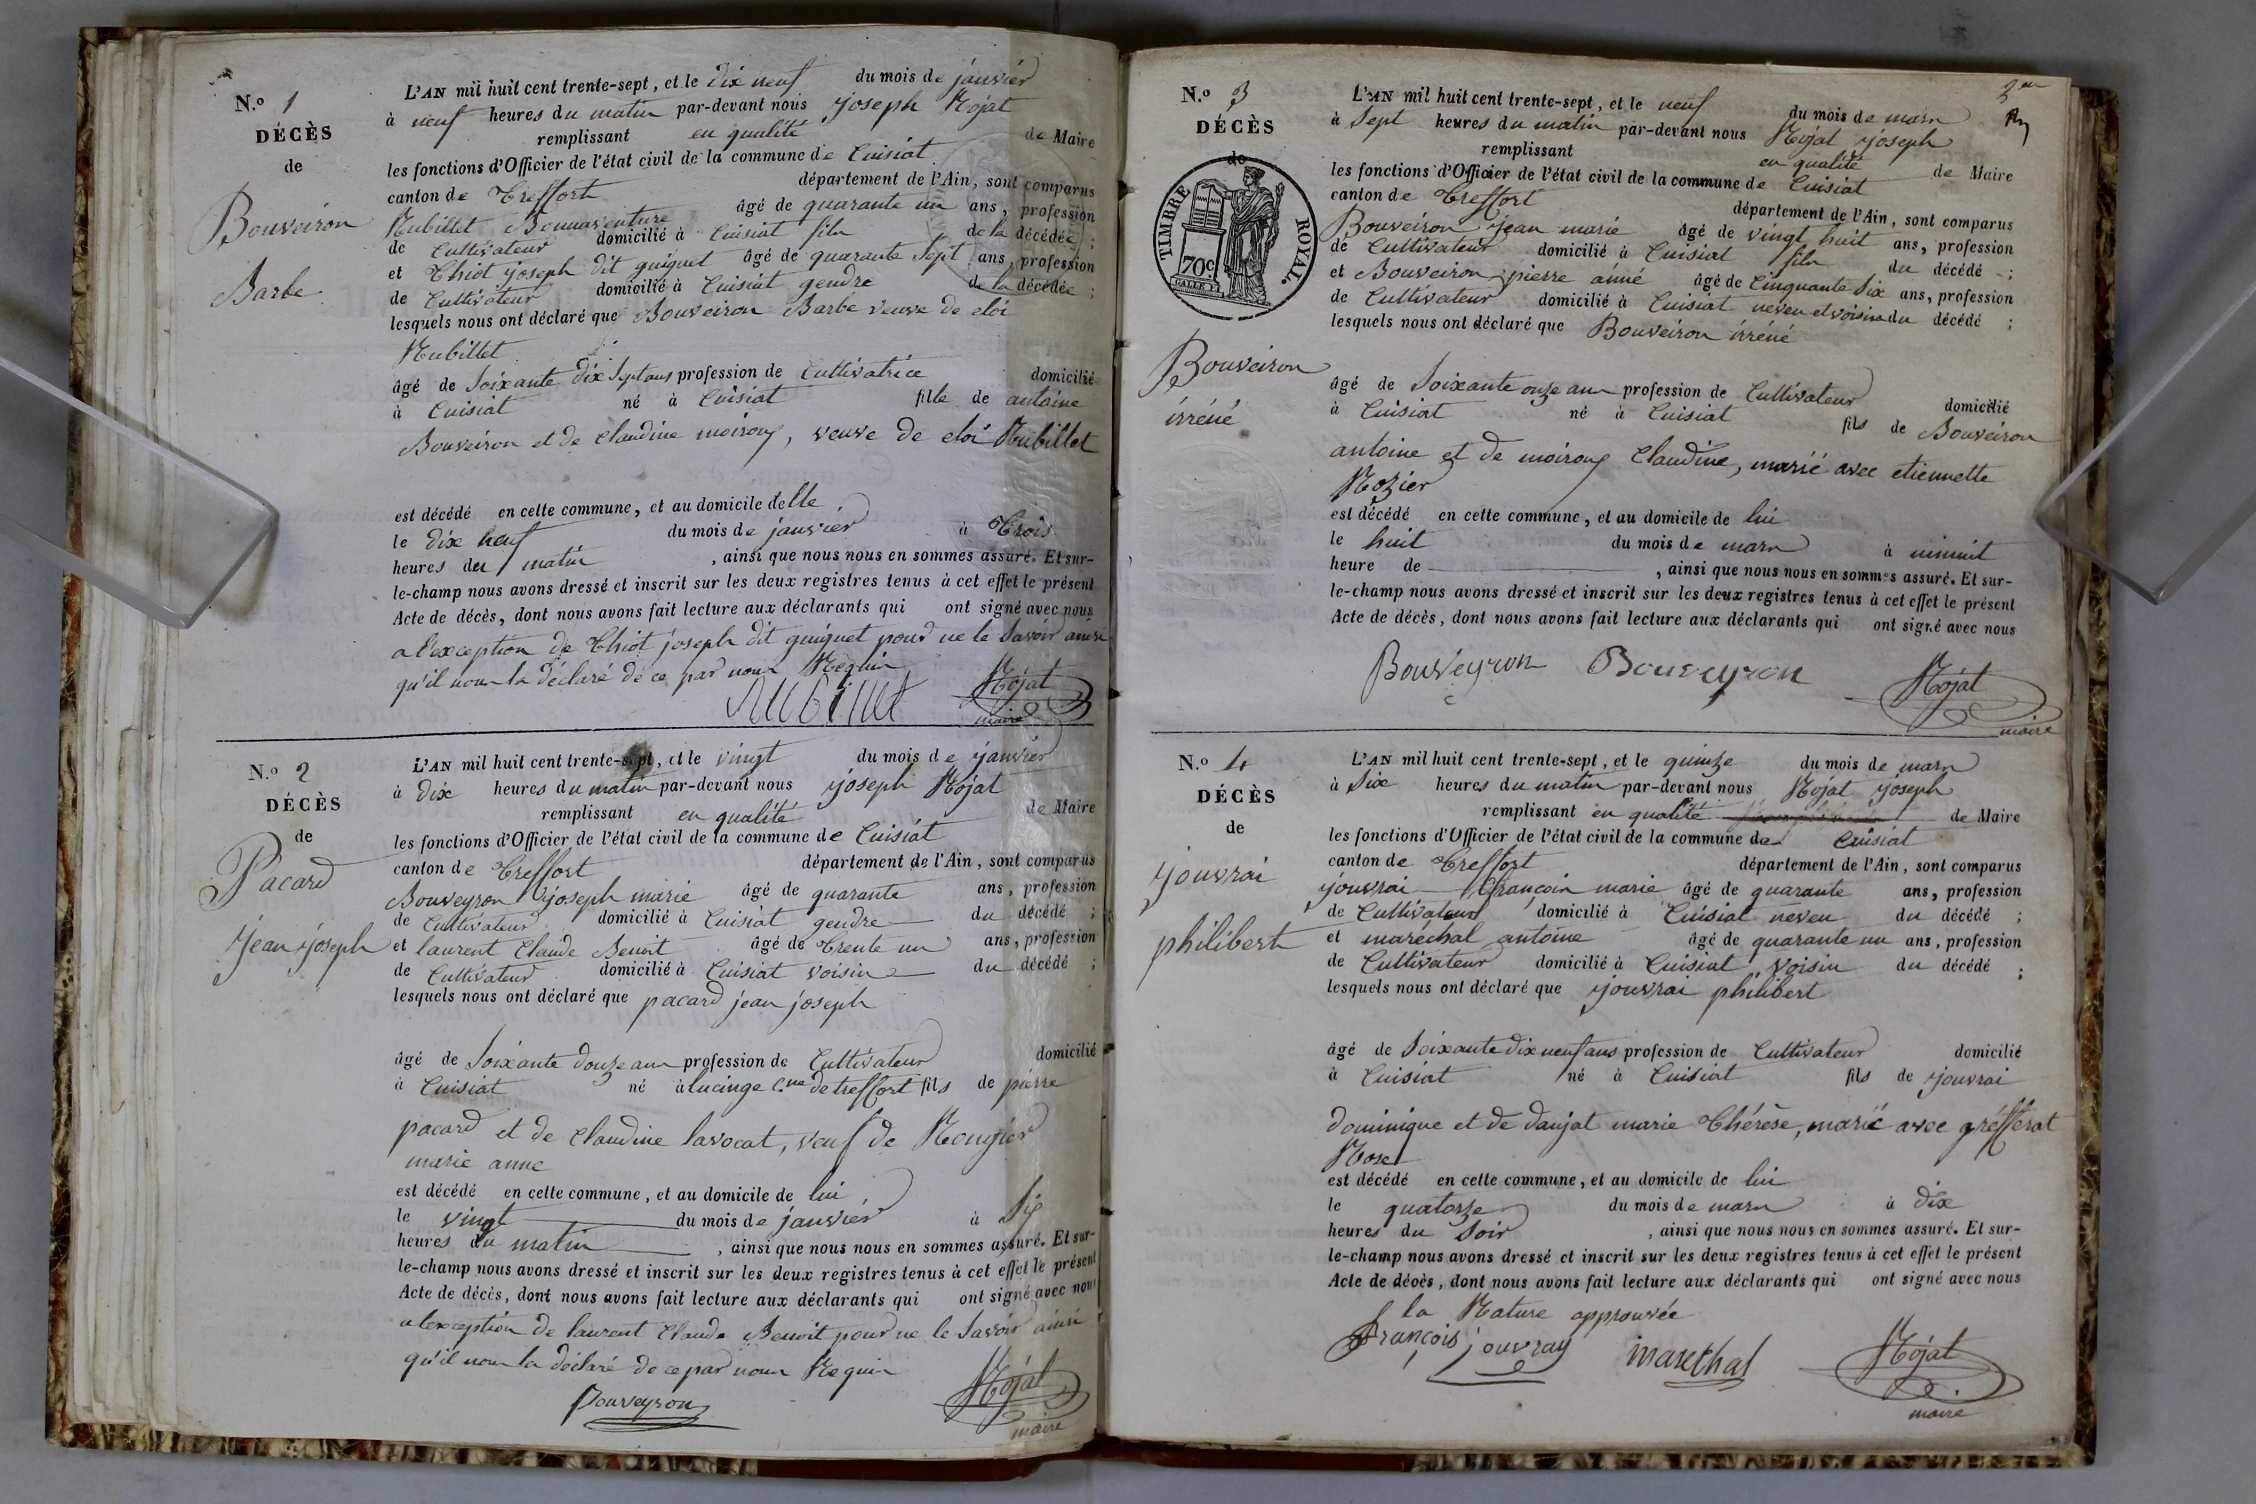 N.o 1
DÉCÈS
de
Bouveiron
Barbe
L'AN mil huit cent trente-sept, et le dix neuf du mois de janvier
à neuf heures du matin par-devant nous joseph Rojat
remplissant en qualité de Maire
les fonctions d'Officier de l'état civil de la commune de Cuisiat
canton de Treffort département de l'Ain, sont comparus
Rubillet Bonnaventure âgé de quarante un ans, profession
de Cultivateur domicilié à Cuisiat fils de la décédée ;
et Thiot joseph dit guiguet âgé de quarante sept ans, profession
de Cultivateur domicilié à Cuisiat gendre de la décédée ;
lesquels nous ont déclaré que Bouveiron Barbe veuve de eloi
Rubillet
âgé de soixante dix sept ans profession de Cultivatrice domicilié
à Cuisiat né à Cuisiat fille de antoine
Bouveiron et de claudine moiroug, veuve de eloi Rubillet
est décédé en cette commune, et au domicile delle
le dix neuf du mois de janvier à Trois
heures du matin , ainsi que nous nous en sommes assuré. Et sur-
le-champ nous avons dressé et inscrit sur les deux registres tenus à cet effet le présent
Acte de décès, dont nous avons fait lecture aux déclarants qui ont signé avec nous
a l'exception de Thiot joseph dit guiguet pour ne le savoir ainsi
qu'il nous la déclaré de ce par nous Requis
Rubillet Rojat
maire
N.o 2
DÉCÈS
de
Pacard
jean joseph
L'AN mil huit cent trente-sept, et le vingt du mois de janvier
à dix heures du matin par-devant nous joseph Rojat
remplissant en qualité de Maire
les fonctions d'Officier de l'état civil de la commune de Cuisiat
canton de Treffort département de l'Ain, sont comparus
Bouveyron joseph marie âgé de quarante ans, profession
de Cultivateur domicilié à Cuisiat gendre du décédé ;
et laurent Claude Benoit âgé de trente un ans, profession
de Cultivateur domicilié à Cuisiat voisin du décédé ;
lesquels nous ont déclaré que pacard jean joseph
âgé de soixante douze ans profession de Cultivateur domicilié
à Cuisiat né à lucinge c.ne de treffort fils de pierre
pacard et de claudine lavocat, veuf de Rougier
marie anne
est décédé en cette commune, et au domicile de lui
le vingt du mois de janvier à six
heures du matin , ainsi que nous nous en sommes assuré. Et sur-
le-champ nous avons dressé et inscrit sur les deux registres tenus à cet effet le présent
Acte de décès, dont nous avons fait lecture aux déclarants qui ont signé avec nous
a lexception de laurent Claude Benoit pour ne le savoir ainsi
qu'il nous la déclaré de ce par nous Requis
Bouveyron Rojat
maire
N.o 3
DÉCÈS
de
TIMBRE ROYAL.
70c.
Bouveiron
irréné
L'AN mil huit cent trente-sept, et le neuf du mois de mars
à sept heures du matin par-devant nous Rojat joseph
remplissant en qualité de Maire
les fonctions d'Officier de l'état civil de la commune de Cuisiat
canton de Treffort département de l'Ain, sont comparus
Bouveiron jean marie âgé de vingt huit ans, profession
de Cultivateur domicilié à Cuisiat fils du décédé ;
et Bouveiron pierre ainé âgé de Cinquante six ans, profession
de Cultivateur domicilié à Cuisiat neveu et voisin du décédé ;
lesquels nous ont déclaré que Bouveiron irréné
âgé de soixante onze ans profession de Cultivateur domicilié
à Cuisiat né à Cuisiat fils de Bouveiron
antoine et de moiroug Claudine, marié avec etiennette
Rozier
est décédé en cette commune, et au domicile de lui
le huit du mois de mars à minuit
heure de , ainsi que nous nous en sommes assuré. Et sur-
le-champ nous avons dressé et inscrit sur les deux registres tenus à cet effet le présent
Acte de décès, dont nous avons fait lecture aux déclarants qui ont signé avec nous
Bouveyron Bouveyron Rojat
maire
N.o 4
DÉCÈS
de
jouvrai
philibert
L'AN mil huit cent trente-sept, et le quinze du mois de mars
à six heures du matin par-devant nous Rojat joseph
remplissant en qualité de Maire
les fonctions d'Officier de l'état civil de la commune de Cuisiat
canton de Treffort département de l'Ain, sont comparus
jouvrai françois marie âgé de quarante ans, profession
de Cultivateur domicilié à Cuisiat neveu du décédé ;
et maréchal antoine âgé de quarante un ans, profession
de Cultivateur domicilié à Cuisiat voisin du décédé ;
lesquels nous ont déclaré que jouvrai philibert
âgé de soixante dix neuf ans profession de Cultivateur domicilié
à Cuisiat né à Cuisiat fils de jouvrai
dominique et de daujat marie Thérèse, marié avec grefferat
Rose
est décédé en cette commune, et au domicile de lui
le quatorze du mois de mars à dix
heures du soir , ainsi que nous nous en sommes assuré. Et sur-
le-champ nous avons dressé et inscrit sur les deux registres tenus à cet effet le présent
Acte de décès, dont nous avons fait lecture aux déclarants qui ont signé avec nous
la Rature approuvée
François jouvray marethal Rojat
maire